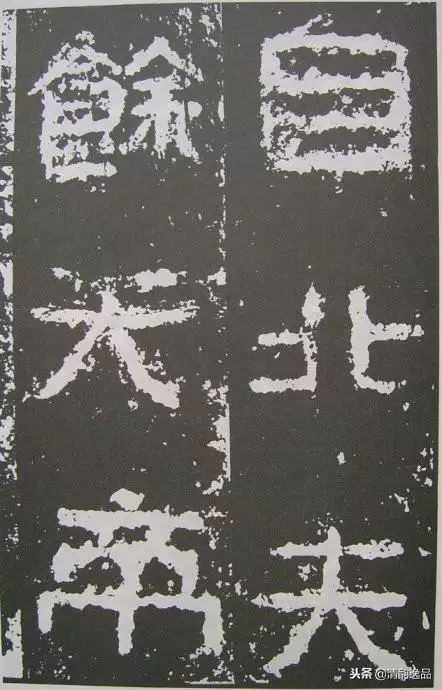 自北夫
餘天帝
头条 @清韵逸品